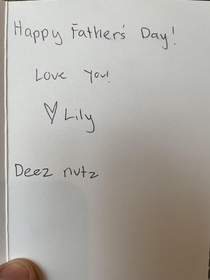 Happy Father's Day!
Love you!
♡ Lily
Deez nutz